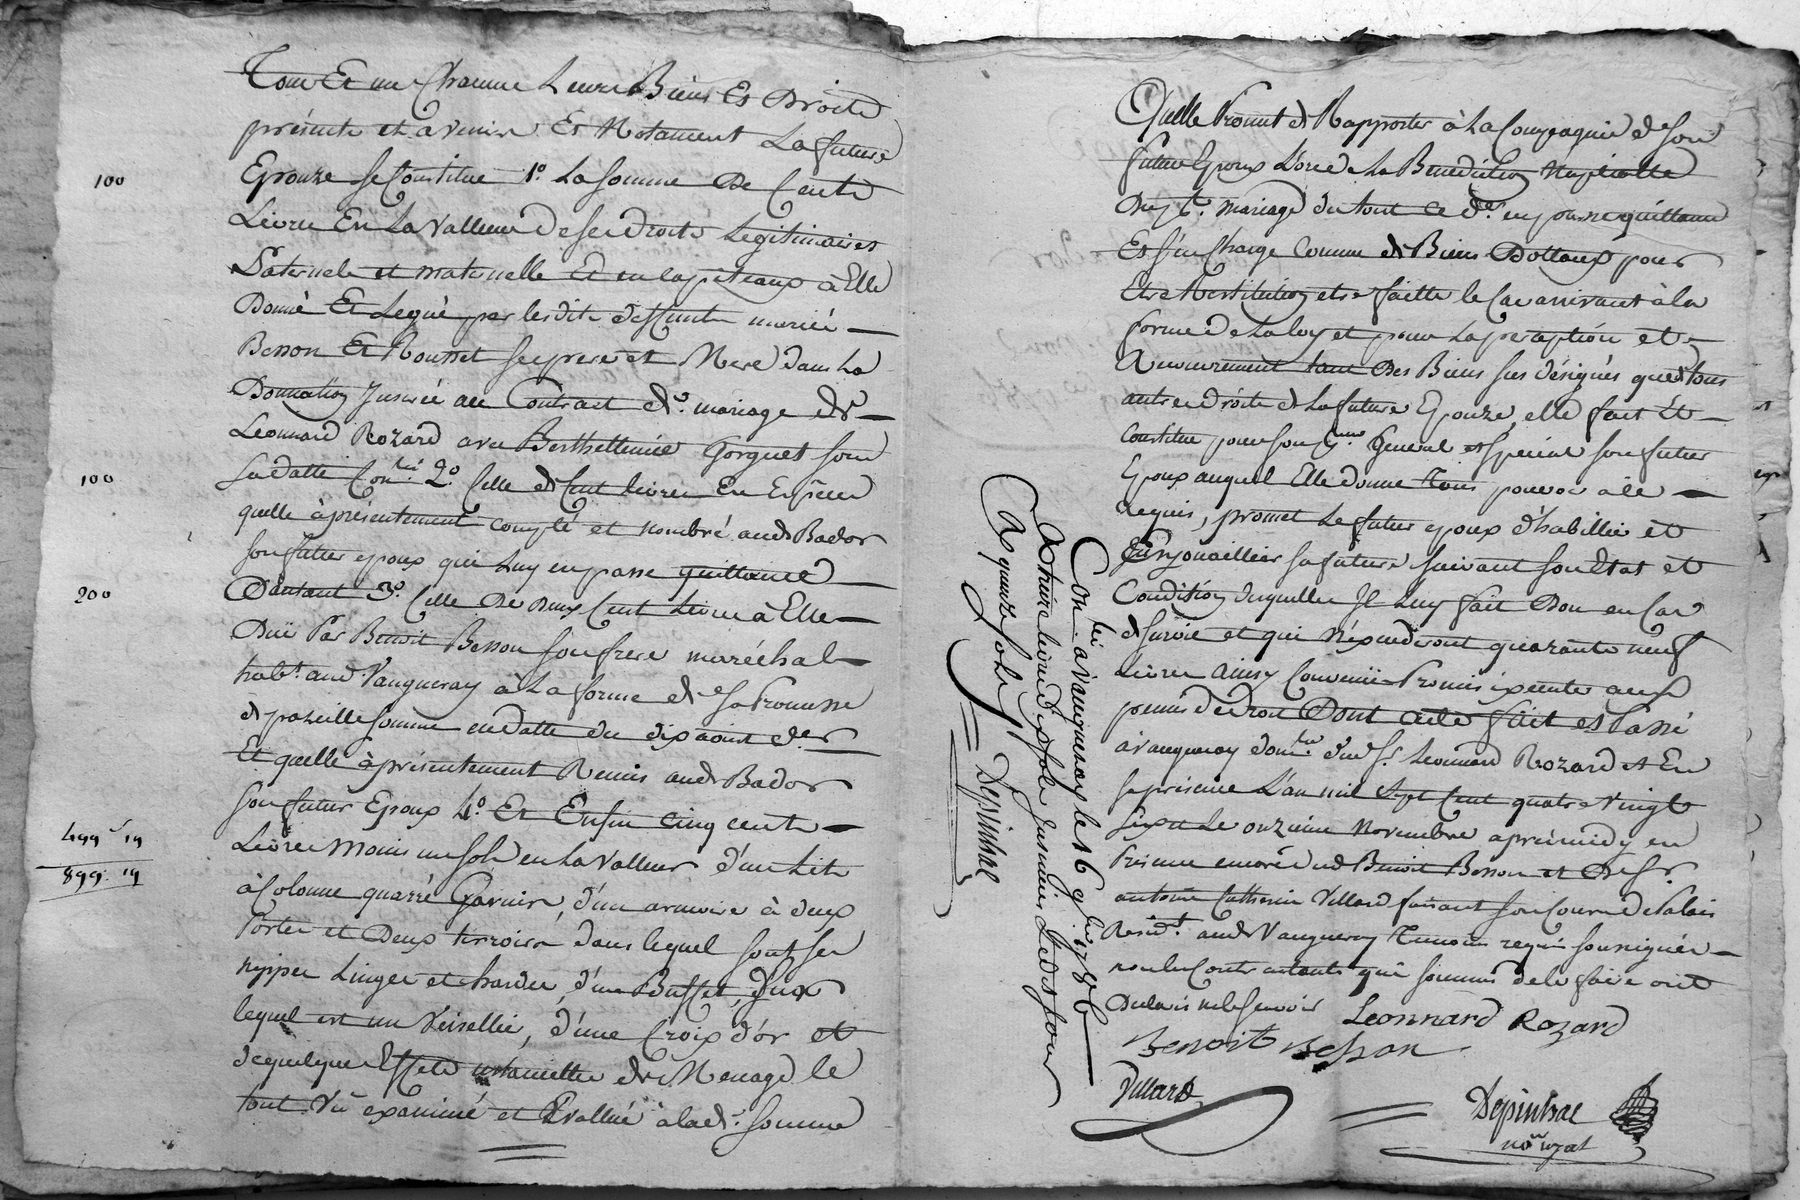 Tous Et un Chacuns Leurs Biens Et Droits
présents et avenir Et Notament La future
Epouze se Constitue 1º. La Somme De Cents
100
Livres En La Valleur de ses droits Legitimaires
Paternels et maternelle Et en capiteaux à Elle
Donné Et Legué par lesdits deffunts mariés
Besson Et Rousset ses pere et Mere dans La
Donnation Inserée au Contract de mariage de Sr
Leonnard Rozard avec Berthellemie Gorguet sous
sa datte Con.lé 2º. Celle de Cent livres En Espèces
100
quelle à présentement compté et nombré aud. Bador
son futur epoux qui Luy en passe quittance
D'autant 3º. Celle De Deux Cent Livres à Elle
200
Duë Par Benoit Besson son frere maréchal
hab.t aud. Vaugneray à La forme de sa Promesse
de pareille somme en datte du dix aoust der
Et quelle à présentement Remis aud. Bador
son futur Epoux 4º. Et Enfin cinq cents
499 " 19
Livres Moins un sols en La Valleur d'un Lit
899 " 19
à Colonne quarré Garnis, d'un armoire à deux
Portes et Deux tirroirs dans lequel sont ses
nippes Linges et hardes, d'un Buffet, sur
lequel est un Veisellier, d'une Croix d'or et
de quelques Effets ustancilles de Menage le
tout Vû examiné et Evallué à lad. somme
Qu'elle Promet de Rapporter à La Compagnie de son
futur Epoux L'ors de La Benediction Nuptialle
Du p.t mariage du tout ce d.er en passe quittance
Et s'en Charge Comme de Biens Dottaux pour
Etre Restitution etre faitte le Cas arrivant à la
forme de La loy et pour La perception et
Recouvrement tant Des Biens sus désignés que de tous
autres droits de La future Epouze, elle fait Et
Constitue pour son p.eur General et special son futur
Epoux auquel Elle donne Tous pouvoir à ce
requis, promet Le futur epoux d'habiller et
Enjouailler sa future suivant son Etat et
Condition desquelles Il Luy fait Don en Cas
de survie et qui n'éxcederont quarante neuf
Livres Ainsy Convenu Promis
peines de droit Dont acte fait et Passé
à vaugneray dom.lle dud. Sr. Leonnard Rozard et En
sa présence L'an mil Sept Cent quatre Vingt
Six Le onzieme Novembre après midy en
Présence encore dud. Benoit Besson et De Sr.
antoine Catherin Villard faisant son Cours de Palais
Resid.t aud. Vaugneray Temoins requis soussignés
non les Contractants qui sommés de le faire ont
Declaré ne le sçavoir Leonnard Rozard
Benoit Besson
Villard
Depinhac
no.re royal
Con.lé à vaugneray le 16 9bre 1786
Reçu quinze sols
Depinhac